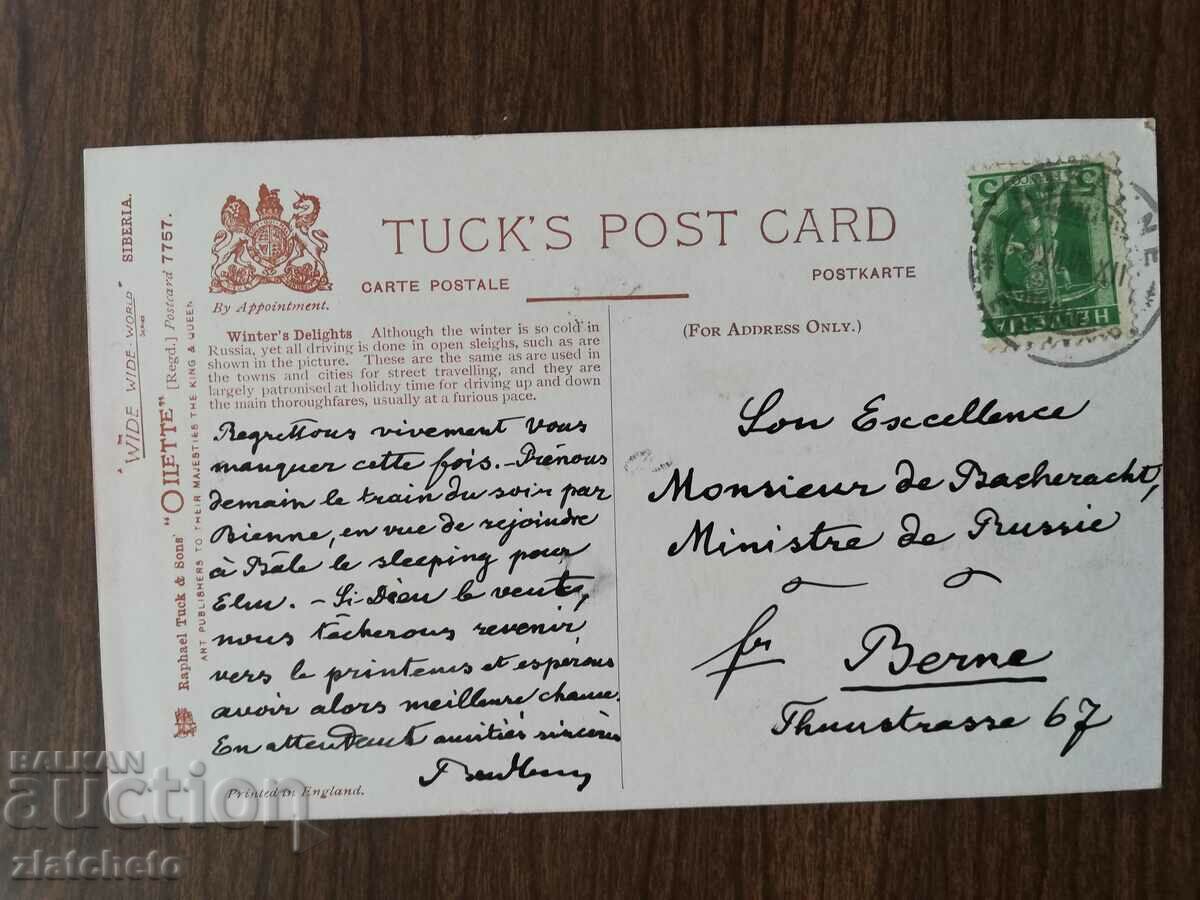 TUCK'S POST CARD
CARTE POSTALE
POSTKARTE
By Appointment.
(FOR ADDRESS ONLY.)
Winter's Delights Although the winter is so cold in
Russia, yet all driving is done in open sleighs, such as are
shown in the picture. These are the same as are used in
the towns and cities for street travelling, and they are
largely patronised at holiday time for driving up and down
the main thoroughfares, usually at a furious pace.
Regrettons vivement vous
manquer cette fois. – Prénons
demain le train du soir par
Bienne, en vue de rejoindre
à Bâle le sleeping pour
Elm. – Si Dieu le veut,
nous tâcherons revenir
vers le printems et espérons
avoir alors meilleure chance.
En attendant amitiés sincères
Printed in England.
Son Excellence
Monsieur de Bacheracht,
Ministre de Russie
fr Berne
Thunstrasse 67
HELVETIA
5 5
NE
XII
"THE WIDE-WIDE-WORLD" SERIES SIBERIA.
Raphael Tuck & Sons' "OILETTE" [Regd.] Postcard 7757.
ART PUBLISHERS TO THEIR MAJESTIES THE KING & QUEEN
BALKAN
auction
zlatcheto